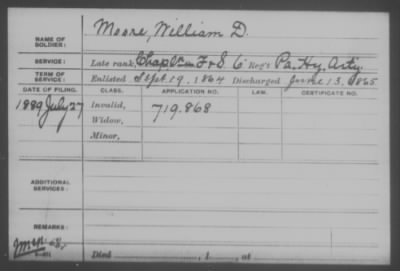 NAME OF SOLDIER: Moore, William D.
SERVICE: Late rank, Chaplain F & S 6 Reg't Pa. Hy. Arty.
TERM OF SERVICE: Enlisted Sept. 19, 1864 Discharged June 13, 1865
DATE OF FILING. CLASS. APPLICATION NO. LAW. CERTIFICATE NO.
1889 July 27 Invalid, 719.868
Widow,
Minor,
ADDITIONAL SERVICES:
REMARKS:
Died , 1 , at